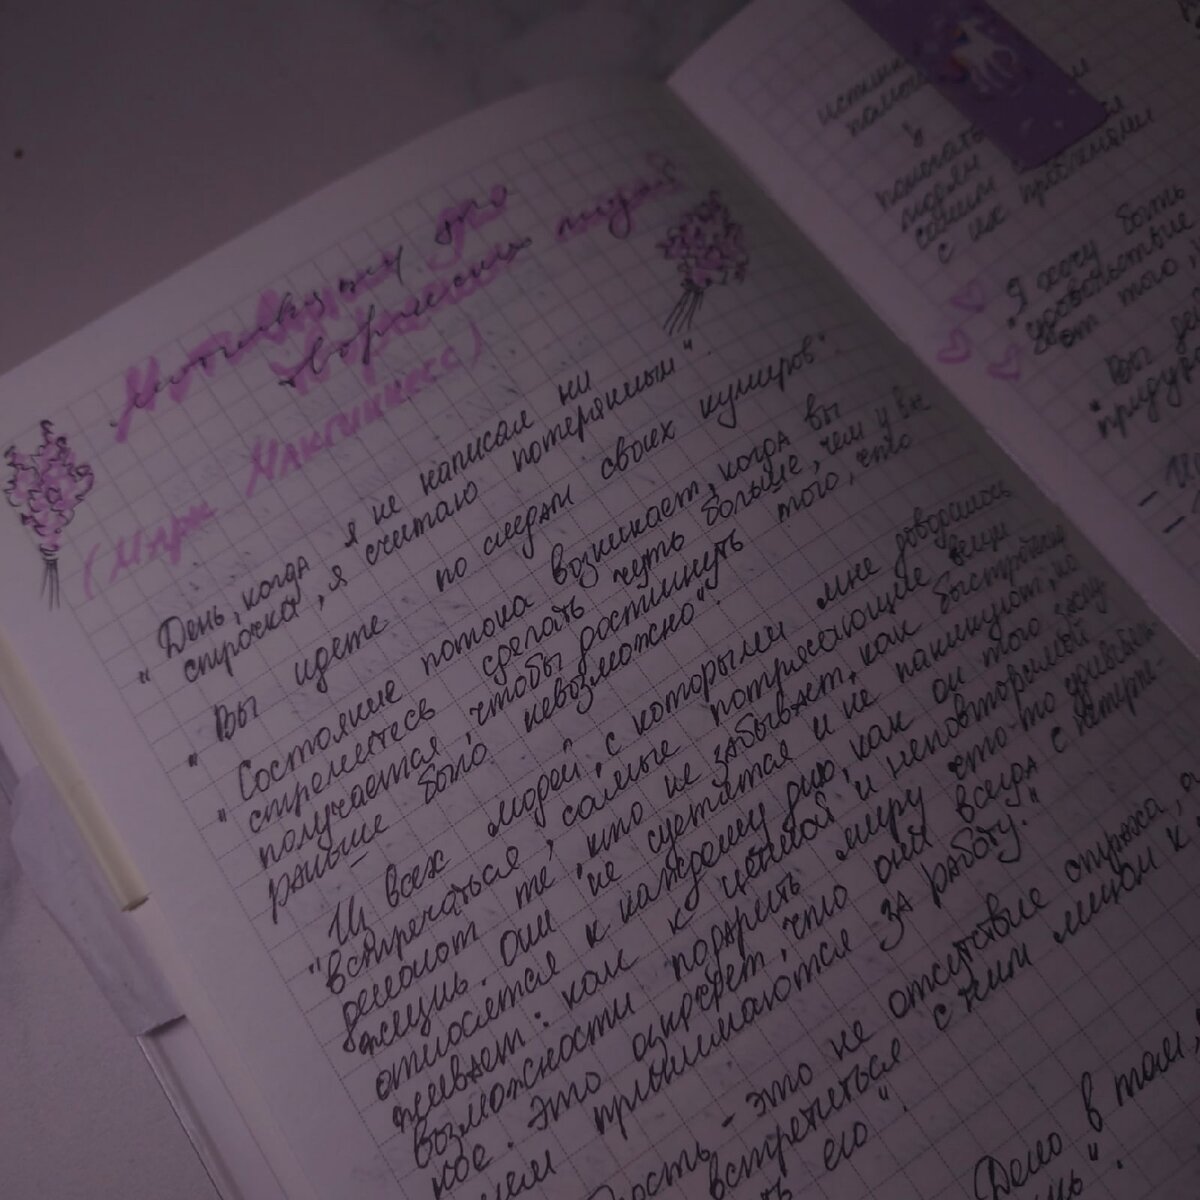 Мотивация для
творческих людей
(Марк МакГиннесс)
"День, когда я не написал ни
строчки, я считаю потерянным".
"Вы идете по следам своих кумиров".
"Состояние потока возникает, когда вы
стремитесь сделать чуть больше, чем у вас
получается, чтобы достигнуть того, что
раньше было невозможно".
"Из всех людей, с которыми мне доводилось
встречаться, самые потрясающие вещи
делают те, кто не забывает, как быстротечна
жизнь. Они не суетятся и не паникуют, но
относятся к каждому дню, как он того заслу
живает: как к ценной и неповторимой
возможности подарить миру что-то удивитель
ное. Это означает, что они всегда с нетерпе-
нием принимаются за работу."
это не отсутствие страха, а
встретиться с ним лицом к
его".
Дело в том,
помогать
людям
самим
с их проблемами
"Я хочу быть
удовольствие
от того,
"Вы